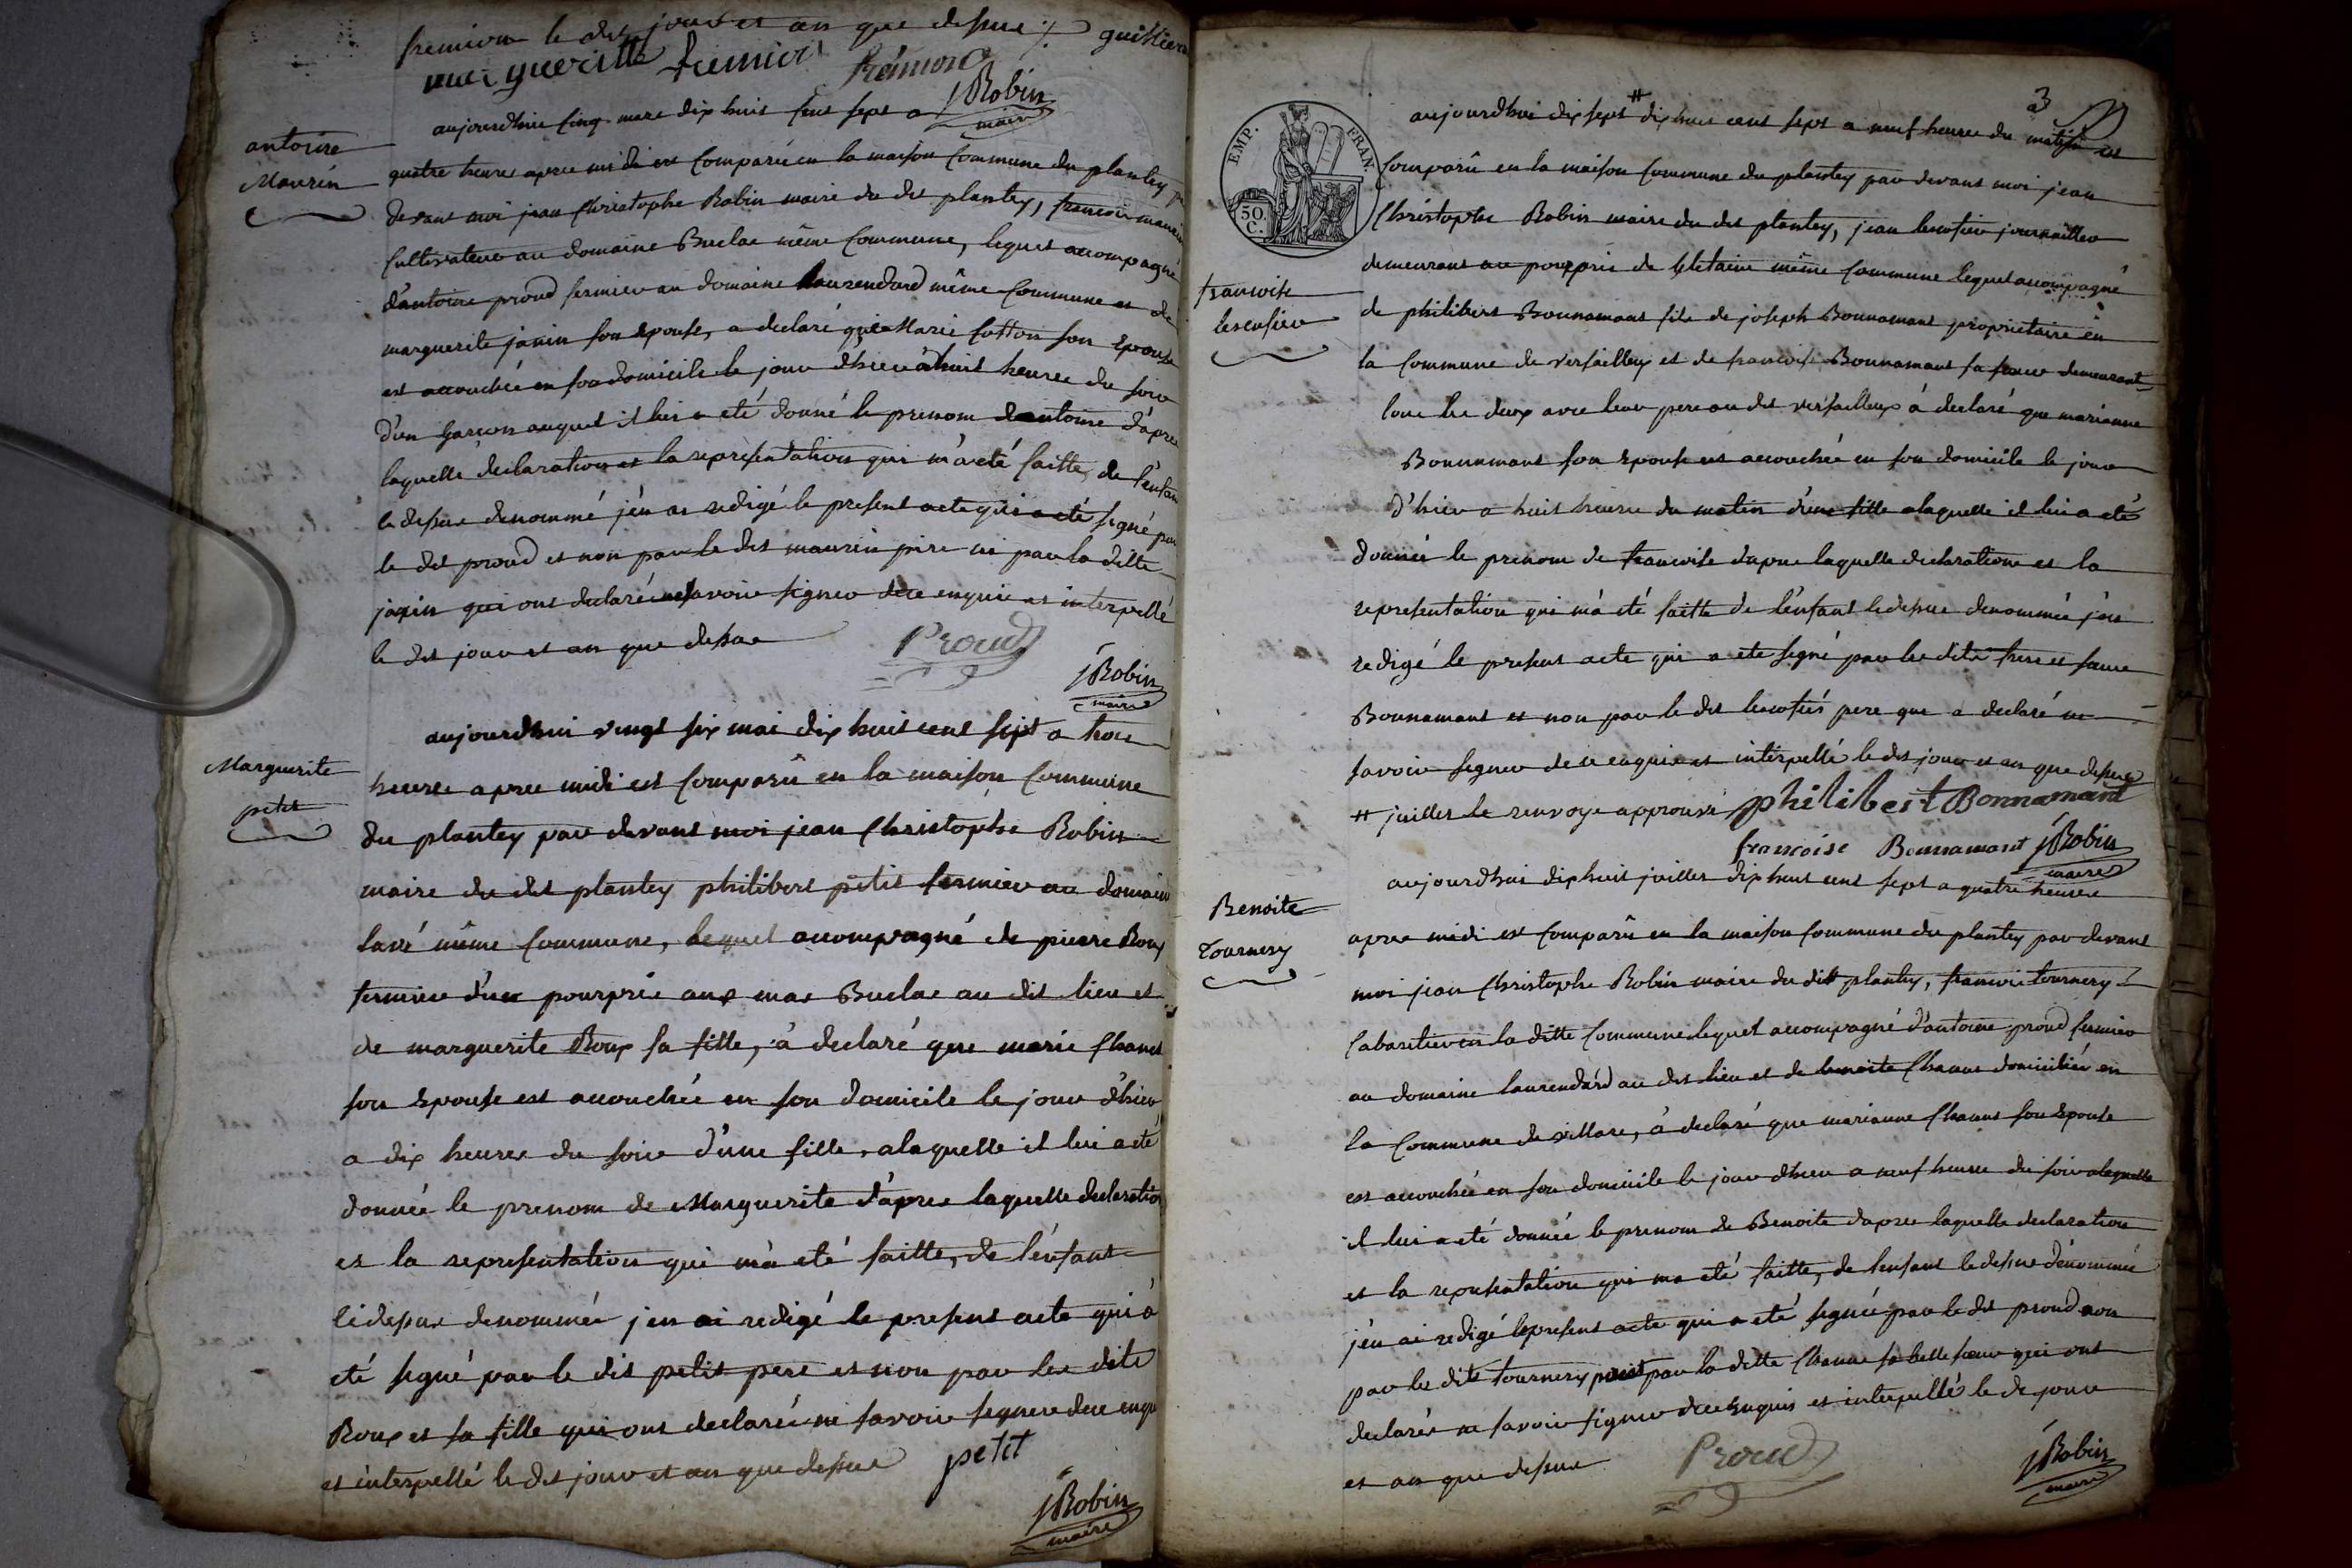 fremion le dit jour et an que dessus ∕. guillier
margueritte fremion fremion
JRobin
maire
antoine
Maurin
aujourdhui cinq mars dix huit cent sept a
quatre heures apres midi est comparu en la maison commune du plantey
devant moi jean christophe Robin maire du dit plantey, francois maurin
cultivateur au domaine Buclas même commune, lequel accompagné
d'antoine proud fermier au domaine laurendard même commune et de
marguerite janin son epouse, a declaré que Marie cotton son Epouse
est accouchée en son domicile le jour d'hier à huit heures du soir
d'un garcon auquel il lui a eté donné le prenom d'antoine d'apres
laquelle declaration et la representation qui m'a eté faitte, de l'enfant
ci dessus denommé j'en ai redigé le present acte qui a eté signé par
le dit proud et non par le dit maurin pere ni par la ditte
janin qui ont declaré ne savoir signer de ce enquis et interpellé
le dit jour et an que dessus
Proud
JRobin
maire
Marguerite
petit
aujourdhui vingt six mai dix huit cent sept a trois
heures apres midi est comparû en la maison commune
du plantey par devant moi jean christophe Robin
maire du dit plantey philibert petit fermier au domaine
lavé même commune, lequel accompagné de pierre Roux
fermier d'un pourpris aux mas Buclas au dit lieu et
de marguerite Roux sa fille, à declaré que marie chanel
son epouse est accouchée en son domicile le jour d'hier
a dix heures du soir d'une fille, alaquelle il lui a eté
donnée le prenom de Marguerite d'apres laquelle declaration
et la representation qui m'a eté faitte, de l'enfant
ci dessus denommée j'en ai redigé le present acte qui a
eté signé par le dit petit pere et non par les dits
Roux et sa fille qui ont declaré ne savoir signer de ce enquis
et interpellé le dit jour et an que dessus
petit
JRobin
maire
3
EMP. FRAN.
50.
C.
francoise
lescufier
aujourdhui dix sept # dix huit cent sept a neuf heures du matin est
comparû en la maison commune du plantey par devant moi jean
christophe Robin maire du dit plantey, jean lescufier journaillier
demeurant au pourpris de même commune lequel accompagné
de philibert Bonnamant fils de joseph Bonnamant proprietaire en
la commune de versailleux et de francoise Bonnamant sa soeur demeurant
tous les deux avec leur pere au dit versailleux à declaré que marianne
Bonnamant son epouse est accouchée en son domicile le jour
d'hier a huit heures du matin d'une fille alaquelle il lui a eté
donnée le prenom de francoise d'apres laquelle declaration et la
representation qui m'à eté faitte de l'enfant ci dessus denommée j'ai
redigé le present acte qui a eté signé par les dits frere et soeur
Bonnamant et non par le dit lescufier pere que a declaré ne
savoir signer de ce enquis et interpellé le dit jour et an que dessus
# juillet le renvoye approuvé philibert Bonnamant
francoise Bonnamant JRobin
maire
Benoite
Tournery
aujourdhui dix huit juillet dix huit cent sept a quatre heures
apres midi est comparû en la maison commune du plantey par devant
moi jean christophe Robin maire du dit plantey, francois tournery
cabaretier en la ditte commune lequel accompagné d'antoine proud fermier
au domaine laurendard au dit lieu et de benoite chanus domiciliée en
la commune de villars, à declaré que marianne chanus son epouse
est accouchée en son domicile le jour d'hier a neuf heures du soir alaquelle
il lui a eté donnée le prenom de Benoite d'apres laquelle declaration
et la representation qui m'a eté faitte, de l'enfant ci dessus denommée
j'en ai redigé le present acte qui a eté signé par le dit proud non
par les dits tournery par la ditte chanus sa belle soeur qui ont
declarés ne savoir signer de ce enquis et interpellé le dit jour
et an que dessus
Proud
JRobin
maire